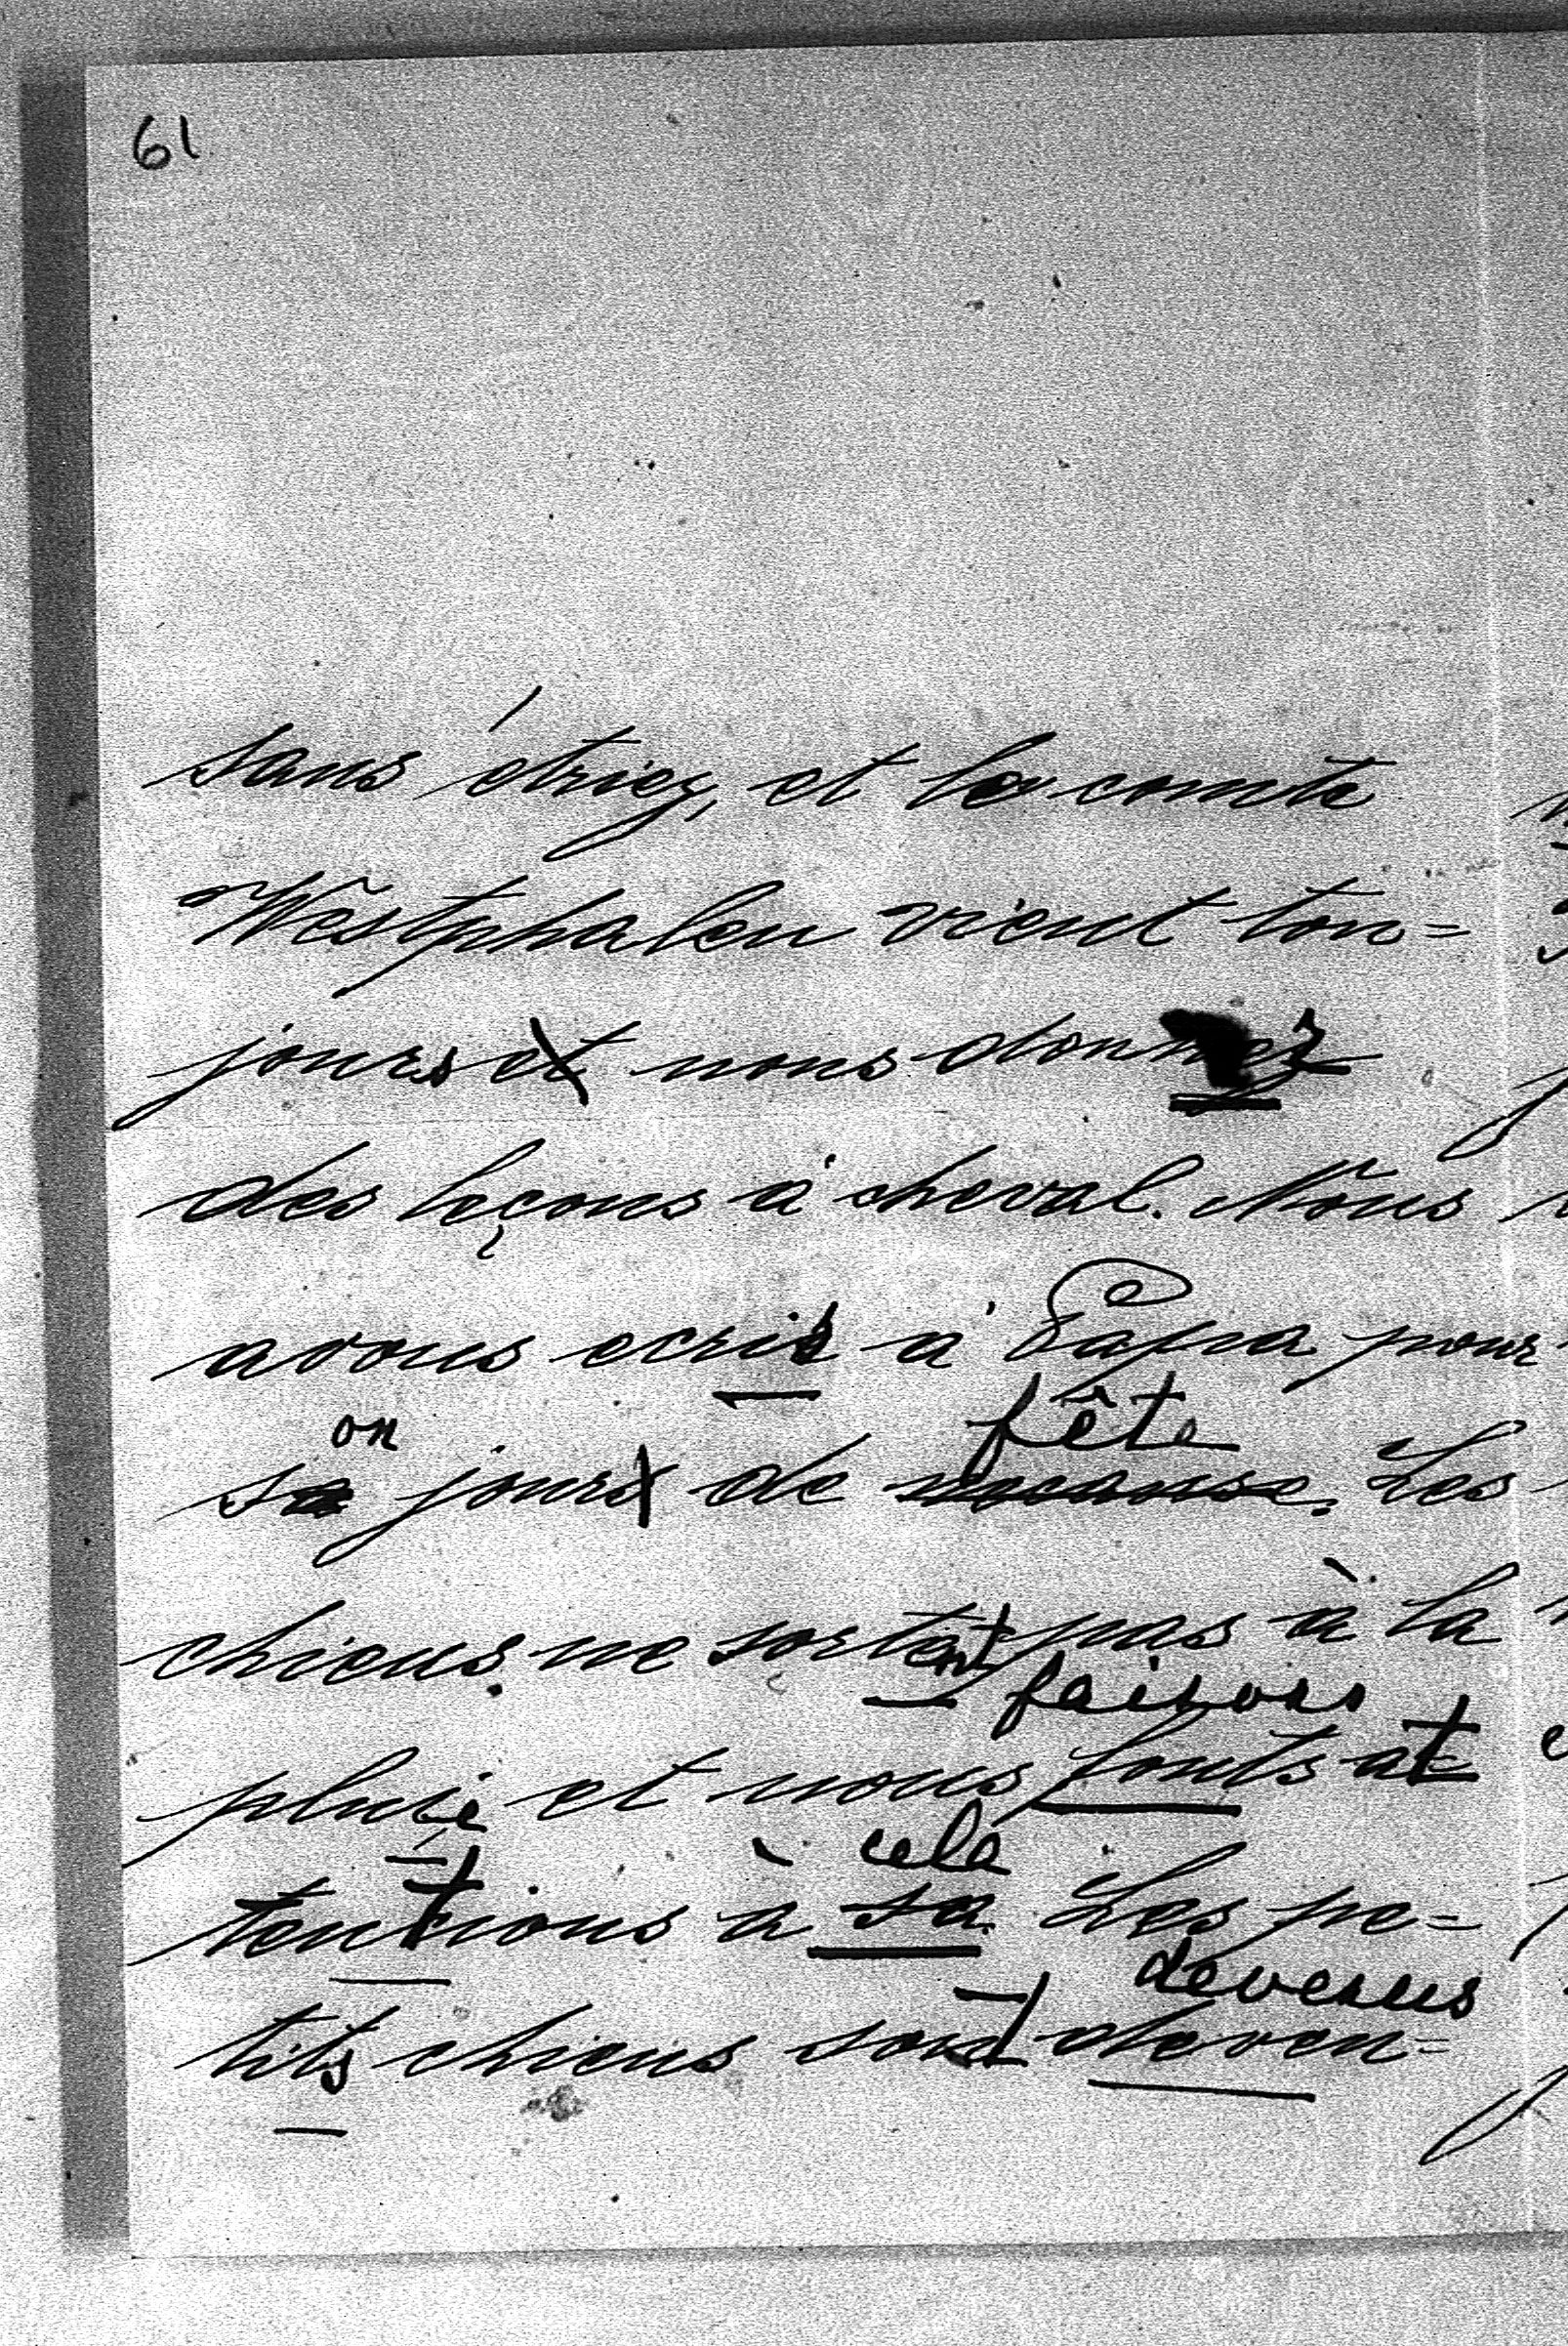 61
sans étriez, et le comte
Westphalen vient tou=
jours et nous donnez
des leçons a' cheval. Nous
avons ecris a' Papa pour
on fête
sa jours de vocanse. Les
chiens ne sortent pas à la
faisons
pluie et nous fonts at
cela
tentions à sa. Les pe=
devenus
tits chiens sont deven=